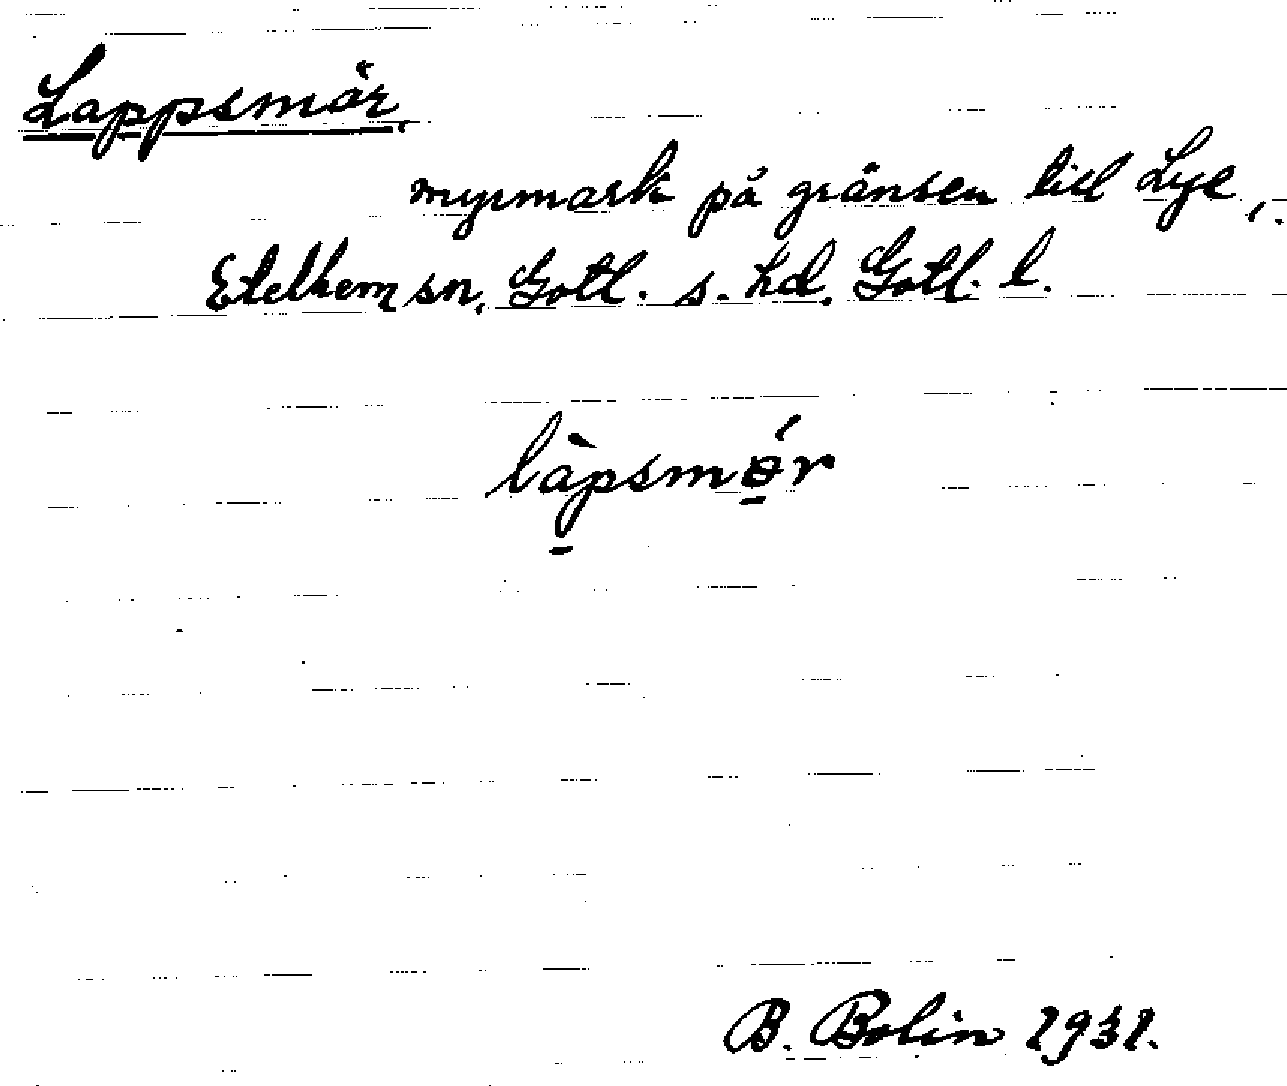 Lappsmör,
myrmark på gränsen till Lye,
Etelhem sn, Gotl. s. hd, Gotl. l.
làpsmө́r
B. Bolin 1931.